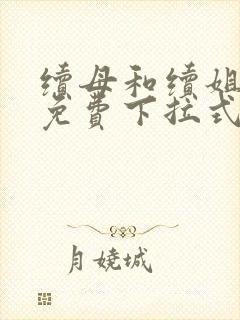 續母和續姐
免費下拉式
月嬈城